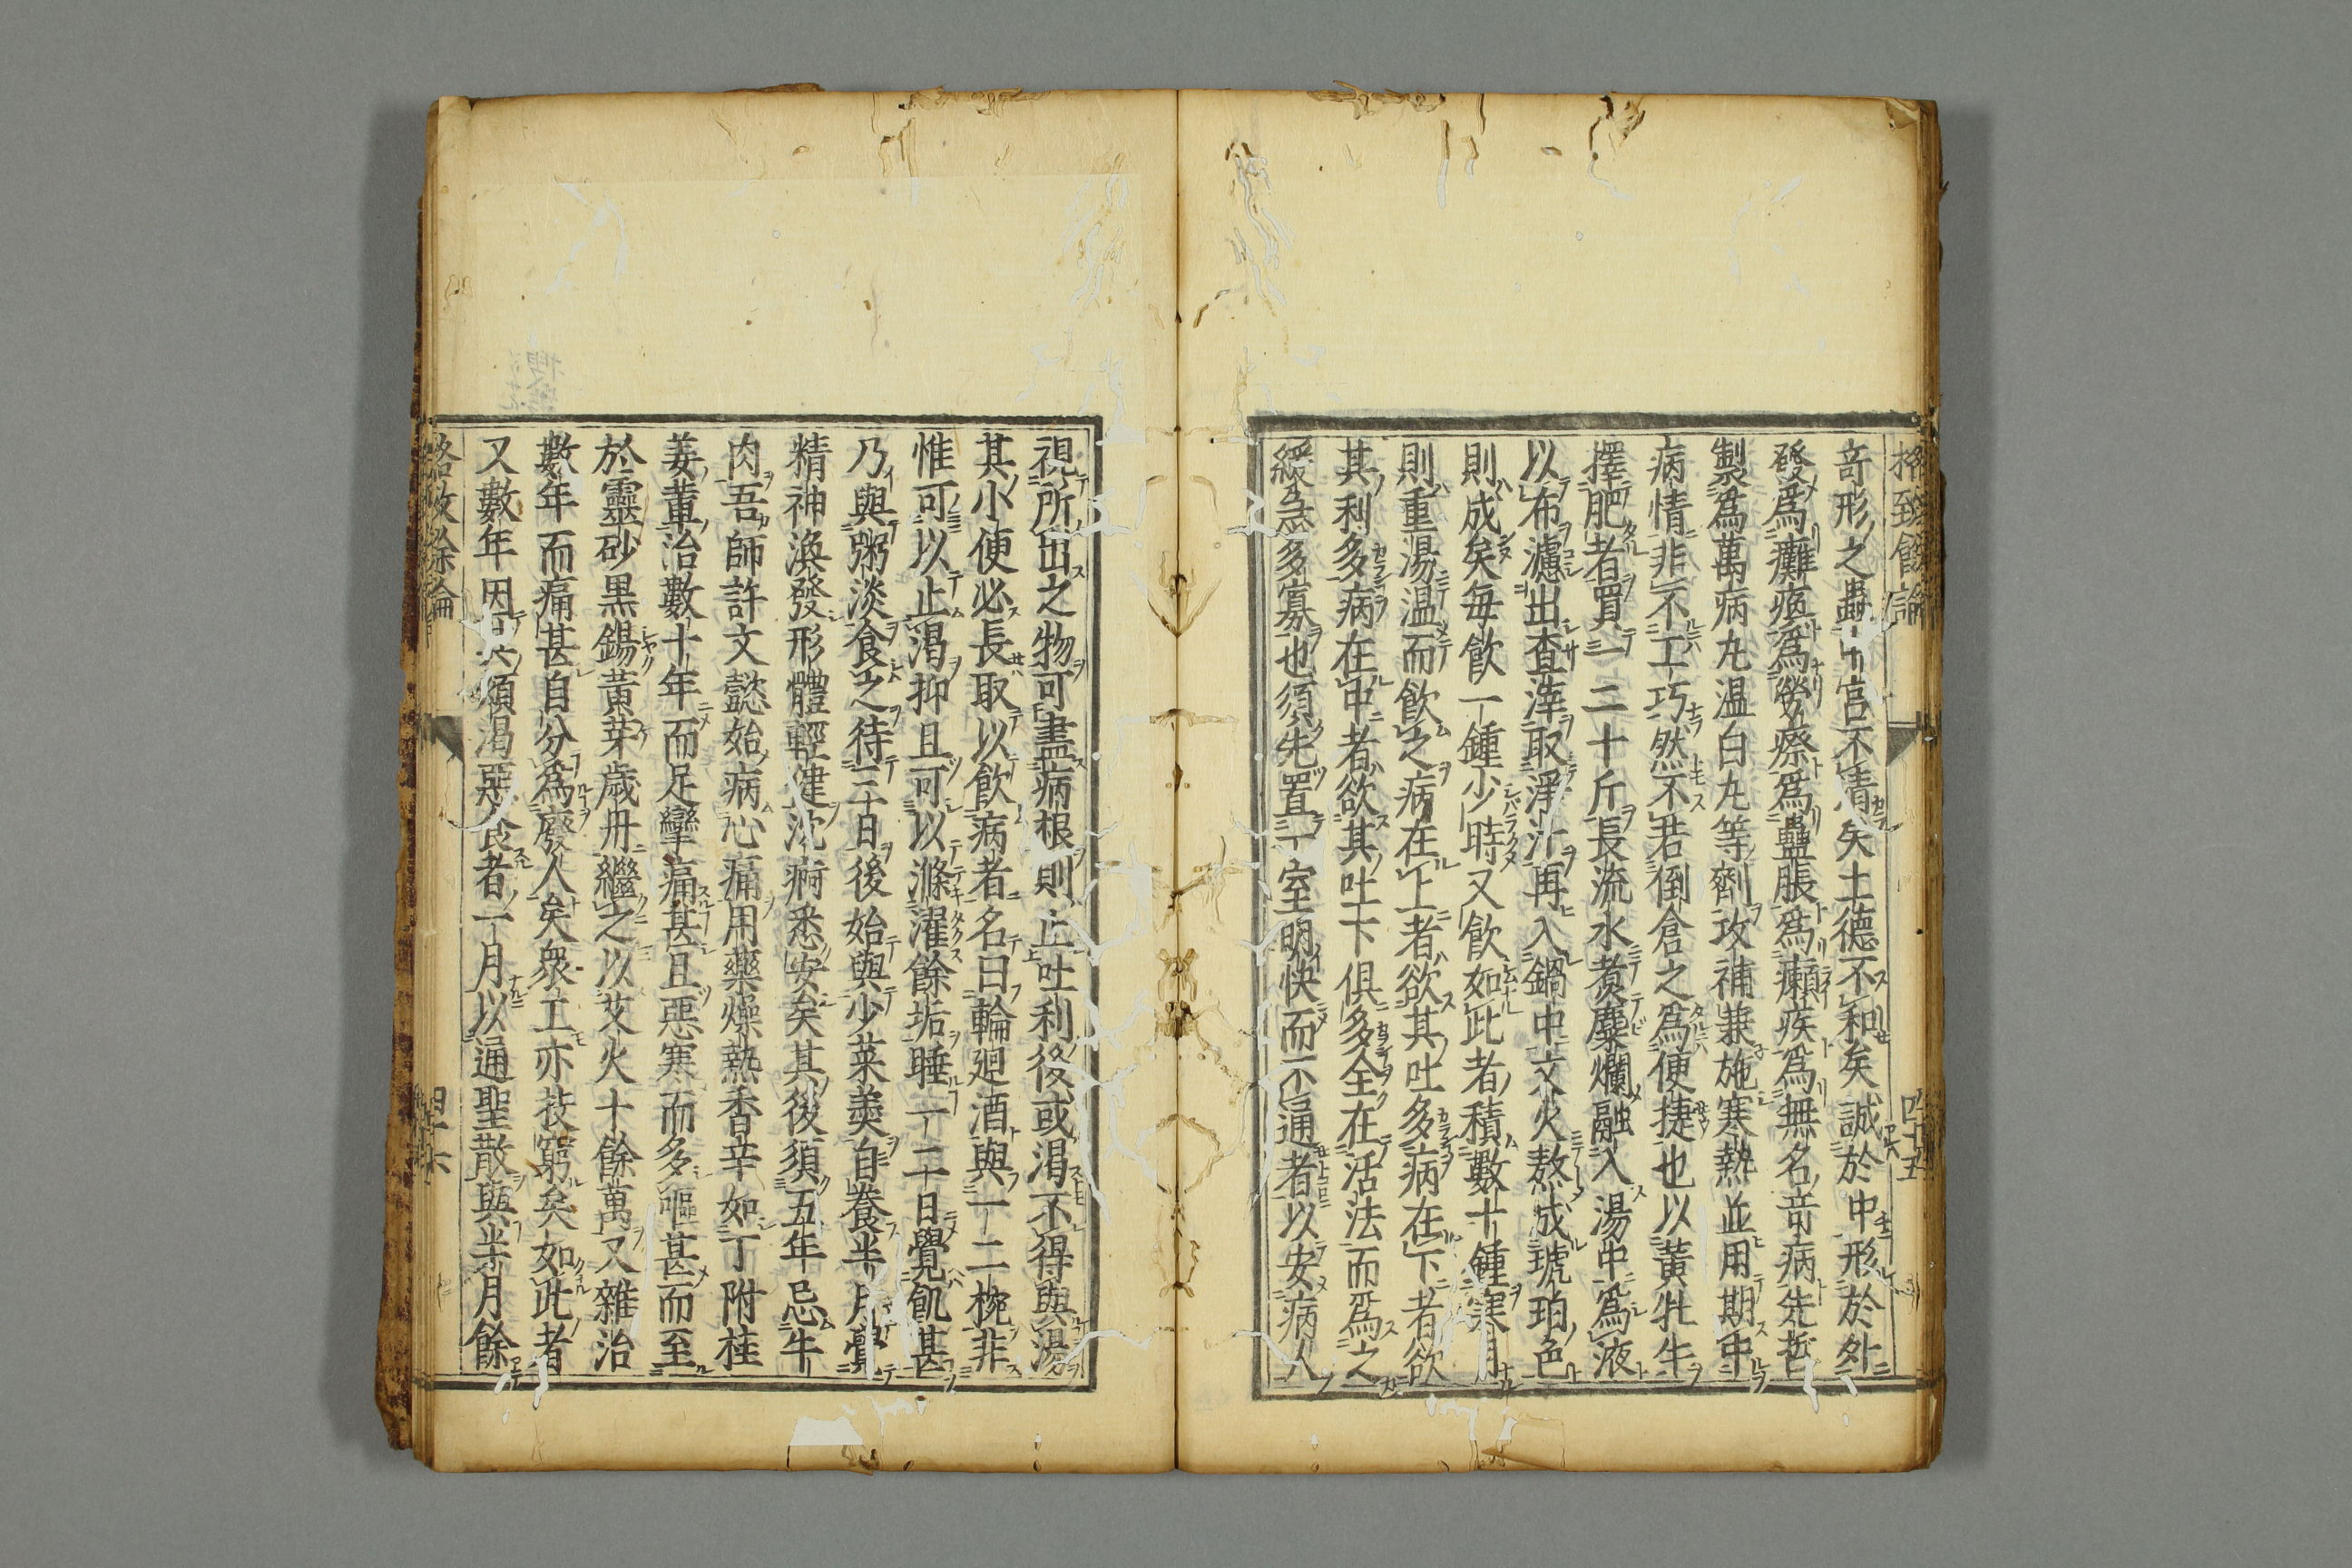 格致餘論
四十五
奇形之蟲中宮不清矣土德不和矣誠於中形於外
發爲癱瘓爲勞瘵爲蠱脹爲癩疾爲無名奇病先哲
製爲萬病丸温白丸等劑攻補兼施寒熱並用期中
病情非不工巧然不若倒倉之爲便捷也以黃牡牛
擇肥者買一二十斤長流水煑麋爛融入湯中爲液
以布濾出查滓取淨汁再入鍋中文火熬成琥珀色
則成矣每飲一鍾少時又飲如此者積數十鍾寒月
則重湯温而飲之病在上者欲其吐多病在下者欲
其利多病在中者欲其吐下俱多全在活法而爲之
緩急多寡也須先置一室明快而不通者以安病人
視所出之物可盡病根則止吐利後或渴不得與湯
其小便必長取以飲病者名曰輪廻酒與一二椀非
惟可以止渴抑且可以滌濯餘垢睡一二日覺飢甚
乃與粥淡食之待三日後始與少菜羹自養半月覺
精神渙發形體輕健沈痾悉安矣其後須五年忌牛
肉吾師許文懿始病心痛用藥燥熱香辛如丁附桂
姜軰治數十年而足攣痛甚且惡寒而多嘔甚而至
於靈砂黒錫黃芽歲丹繼之以艾火十餘萬又雜治
數年而痛甚自分爲廢人矣衆工亦技窮矣如此者
又數年因其煩渴惡食者一月以通聖散與半月餘
格致餘論
四十六